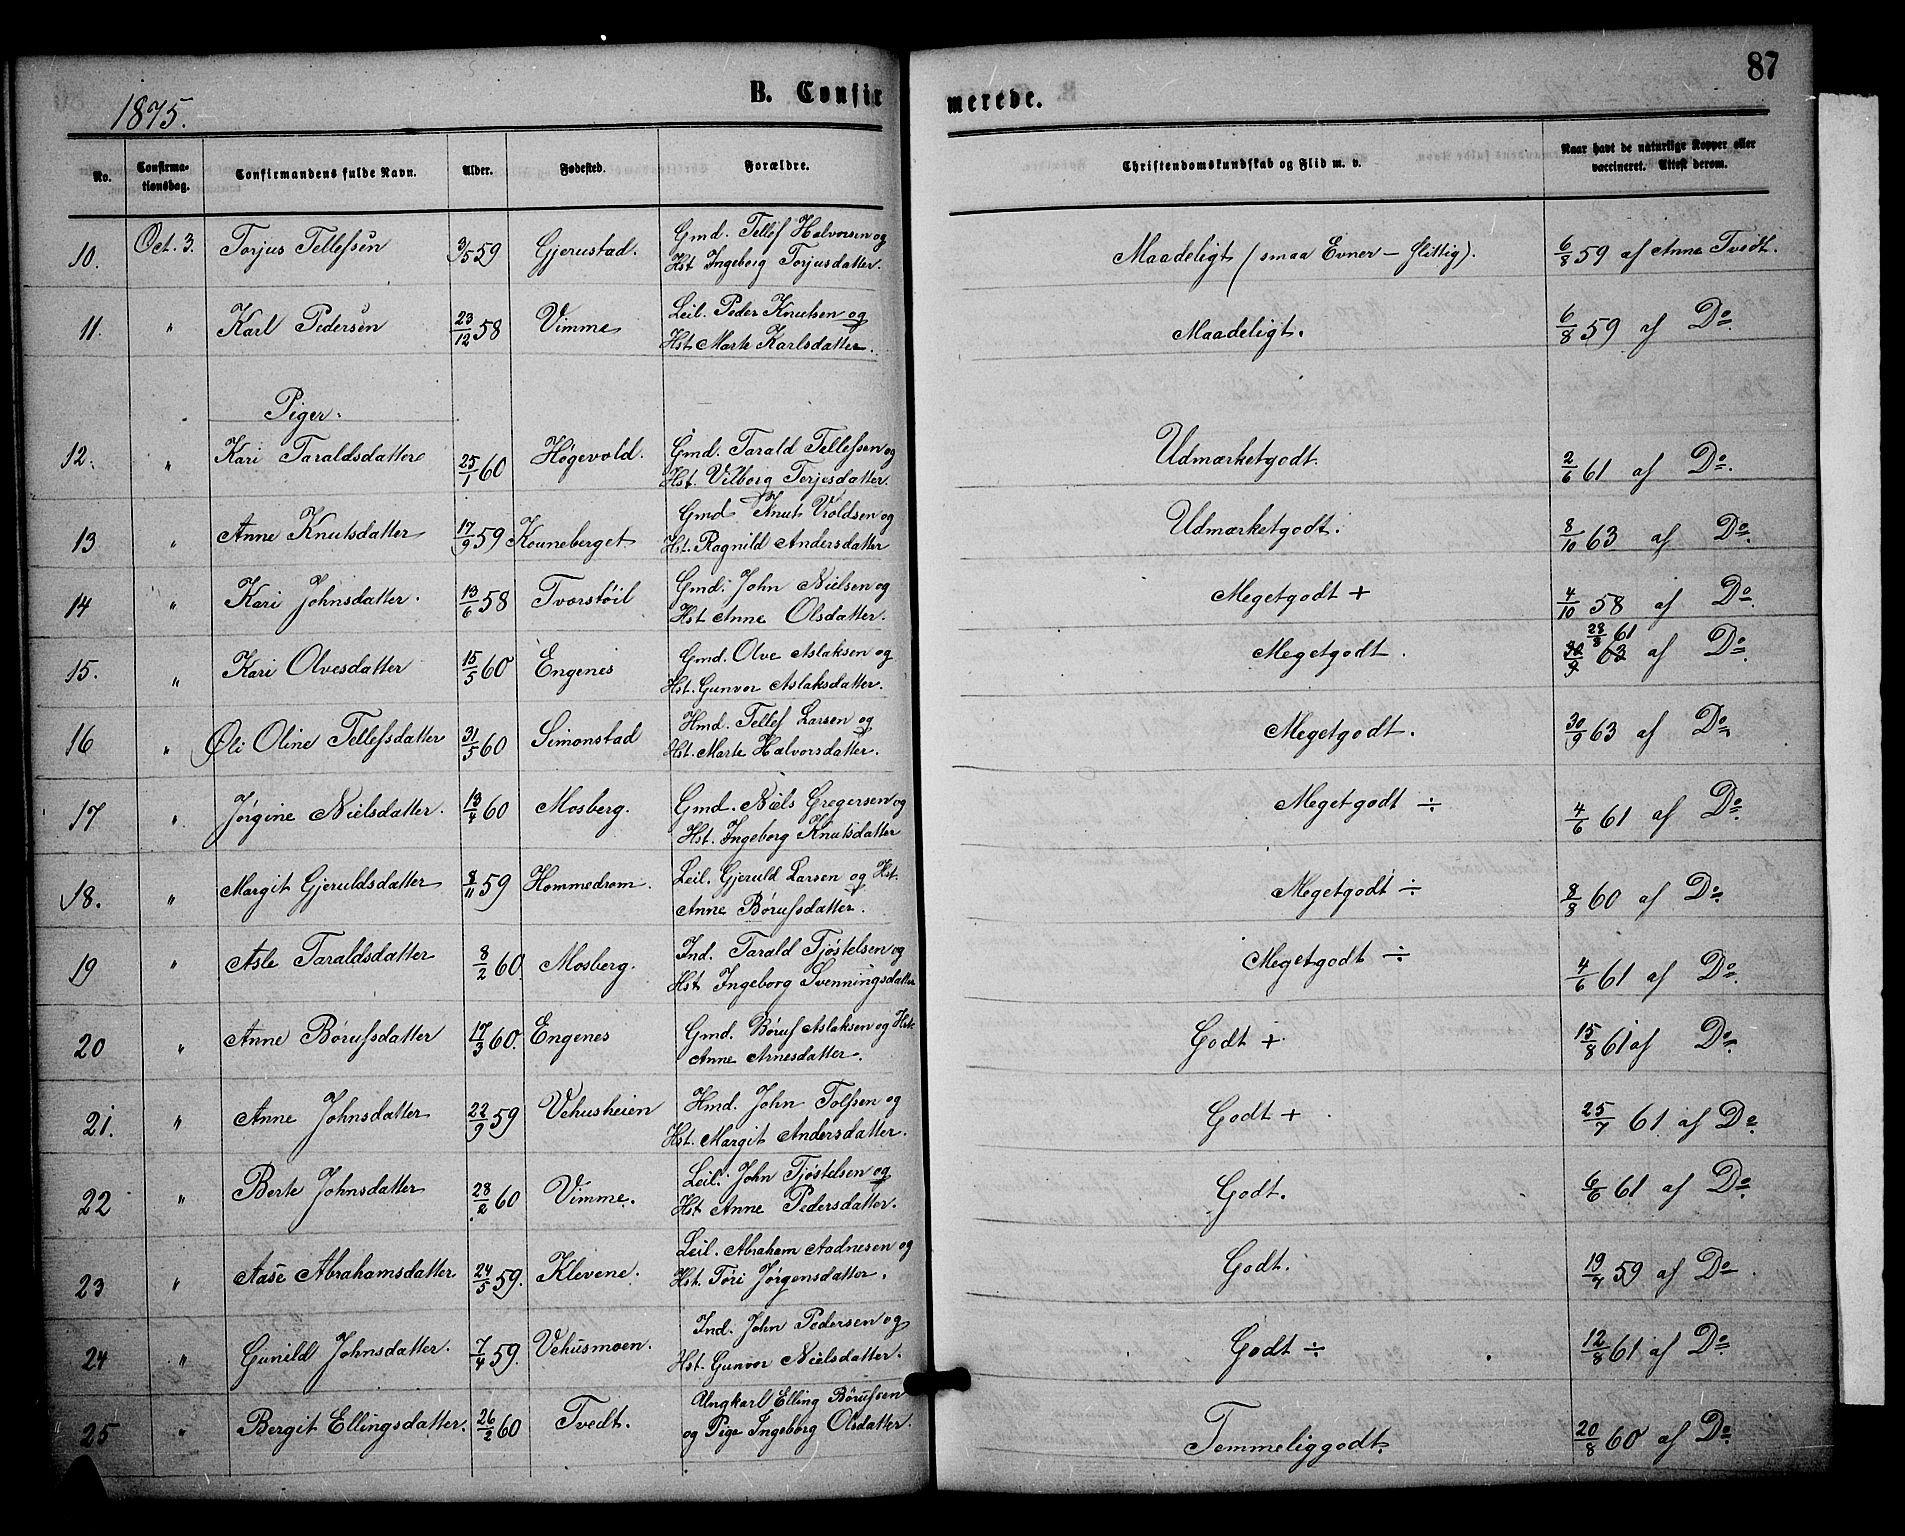 87
1875.
B. Confirmerede.
No. Confirmationsdag. Confirmandens fulde Navn. Alder. Fødested. Forældre. Christendomskundskab og Flid m. v. Naar havt de naturlige Kopper eller vaccineret. Attest derom.
10. Oct. 3. Torjus Tellefsen 3/5 59 Gjerustad. Gmd. Tellef Halvorsen og Hst. Ingeborg Torjusdatter. Maadeligt (smaa Evner – flittig). 6/8 59 af Anne Tvedt.
11. " Karl Pedersen 23/12 58 Vimme Leil. Peder Knutsen og Hst. Marte Karlsdatter. Maadeligt. 6/8 59 af Do.
Piger.
12. " Kari Taraldsdatter 25/1 60 Høgevold. Gmd. Tarald Tellefsen og Hst. Vilborg Terjesdatter. Udmærketgodt. 2/6 61 af Do.
13 " Anne Knutsdatter 17/9 59 Gmd. Knut Vroldsen og Hst. Ragnild Andersdatter Udmærketgodt. 8/10 63 af Do.
14 " Kari Johnsdatter. 13/6 58 Tvorstøil Gmd. John Nielsen og Hst Anne Olsdatter. Megetgodt + 4/10 58 af Do.
15. " Kari Olvesdatter 15/5 60 Engenes Gmd. Olve Aslaksen og Hst. Gunvor Aslaksdatter. Megetgodt. 28/8 61 af Do.
16 " Øli Oline Tellefsdatter 31/5 60 Simonstad Hmd. Tellef Larsen og Hst. Marte Halvorsdatter. Megetgodt. 30/9 63 af Do.
17 " Jørgine Nielsdatter. 13/4 60 Mosberg. Gmd. Niels Gregersen og Hst. Ingeborg Knutsdatter Megetgodt ÷ 4/6 61 af Do.
18. " Margit Gjeruldsdatter 8/11 59 Hommedrom. Leil. Gjeruld Larsen og Hst. Anne Børufsdatter. Megetgodt ÷ 8/8 60 af Do.
19 " Asle Taraldsdatter 8/2 60 Mosberg. Ind. Tarald Tjøstelsen og Hst Ingeborg Svenningsdatter Megetgodt ÷ 4/6 61 af Do.
20 " Anne Børufsdatter 17/3 60. Engenes Gmd. Børuf Aslaksen og Hst. Anne Arnesdatter. Godt + 15/8 61 af Do.
21. " Anne Johnsdatter 22/9 59 Vehusheien Hmd. John Tolfsen og Hst. Margit Andersdatter. Godt + 25/7 61 af Do.
22 " Berte Johnsdatter 28/2 60 Vimme. Leil. John Tjøstelsen og Hst Anne Pedersdatter. Godt. 6/6 61 af Do.
23 " Aase Abrahamsdatter 24/5 59. Klevene. Leil. Abraham Aadnesen og Hst. Tøri Jørgensdatter. Godt. 19/7 59 af Do.
24 " Gunild Johnsdatter. 7/4 59. Vehusmoen. Ind. John Pedersen og Hst. Gunvor Nielsdatter. Godt ÷ 12/8 61 af Do.
25 " Bergit Ellingsdatter. 26/2 60 Tvedt. Ungkarl Elling Børufsen og Pige Ingeborg Olsdatter. Temmeliggodt. 20/8 60 af Do.